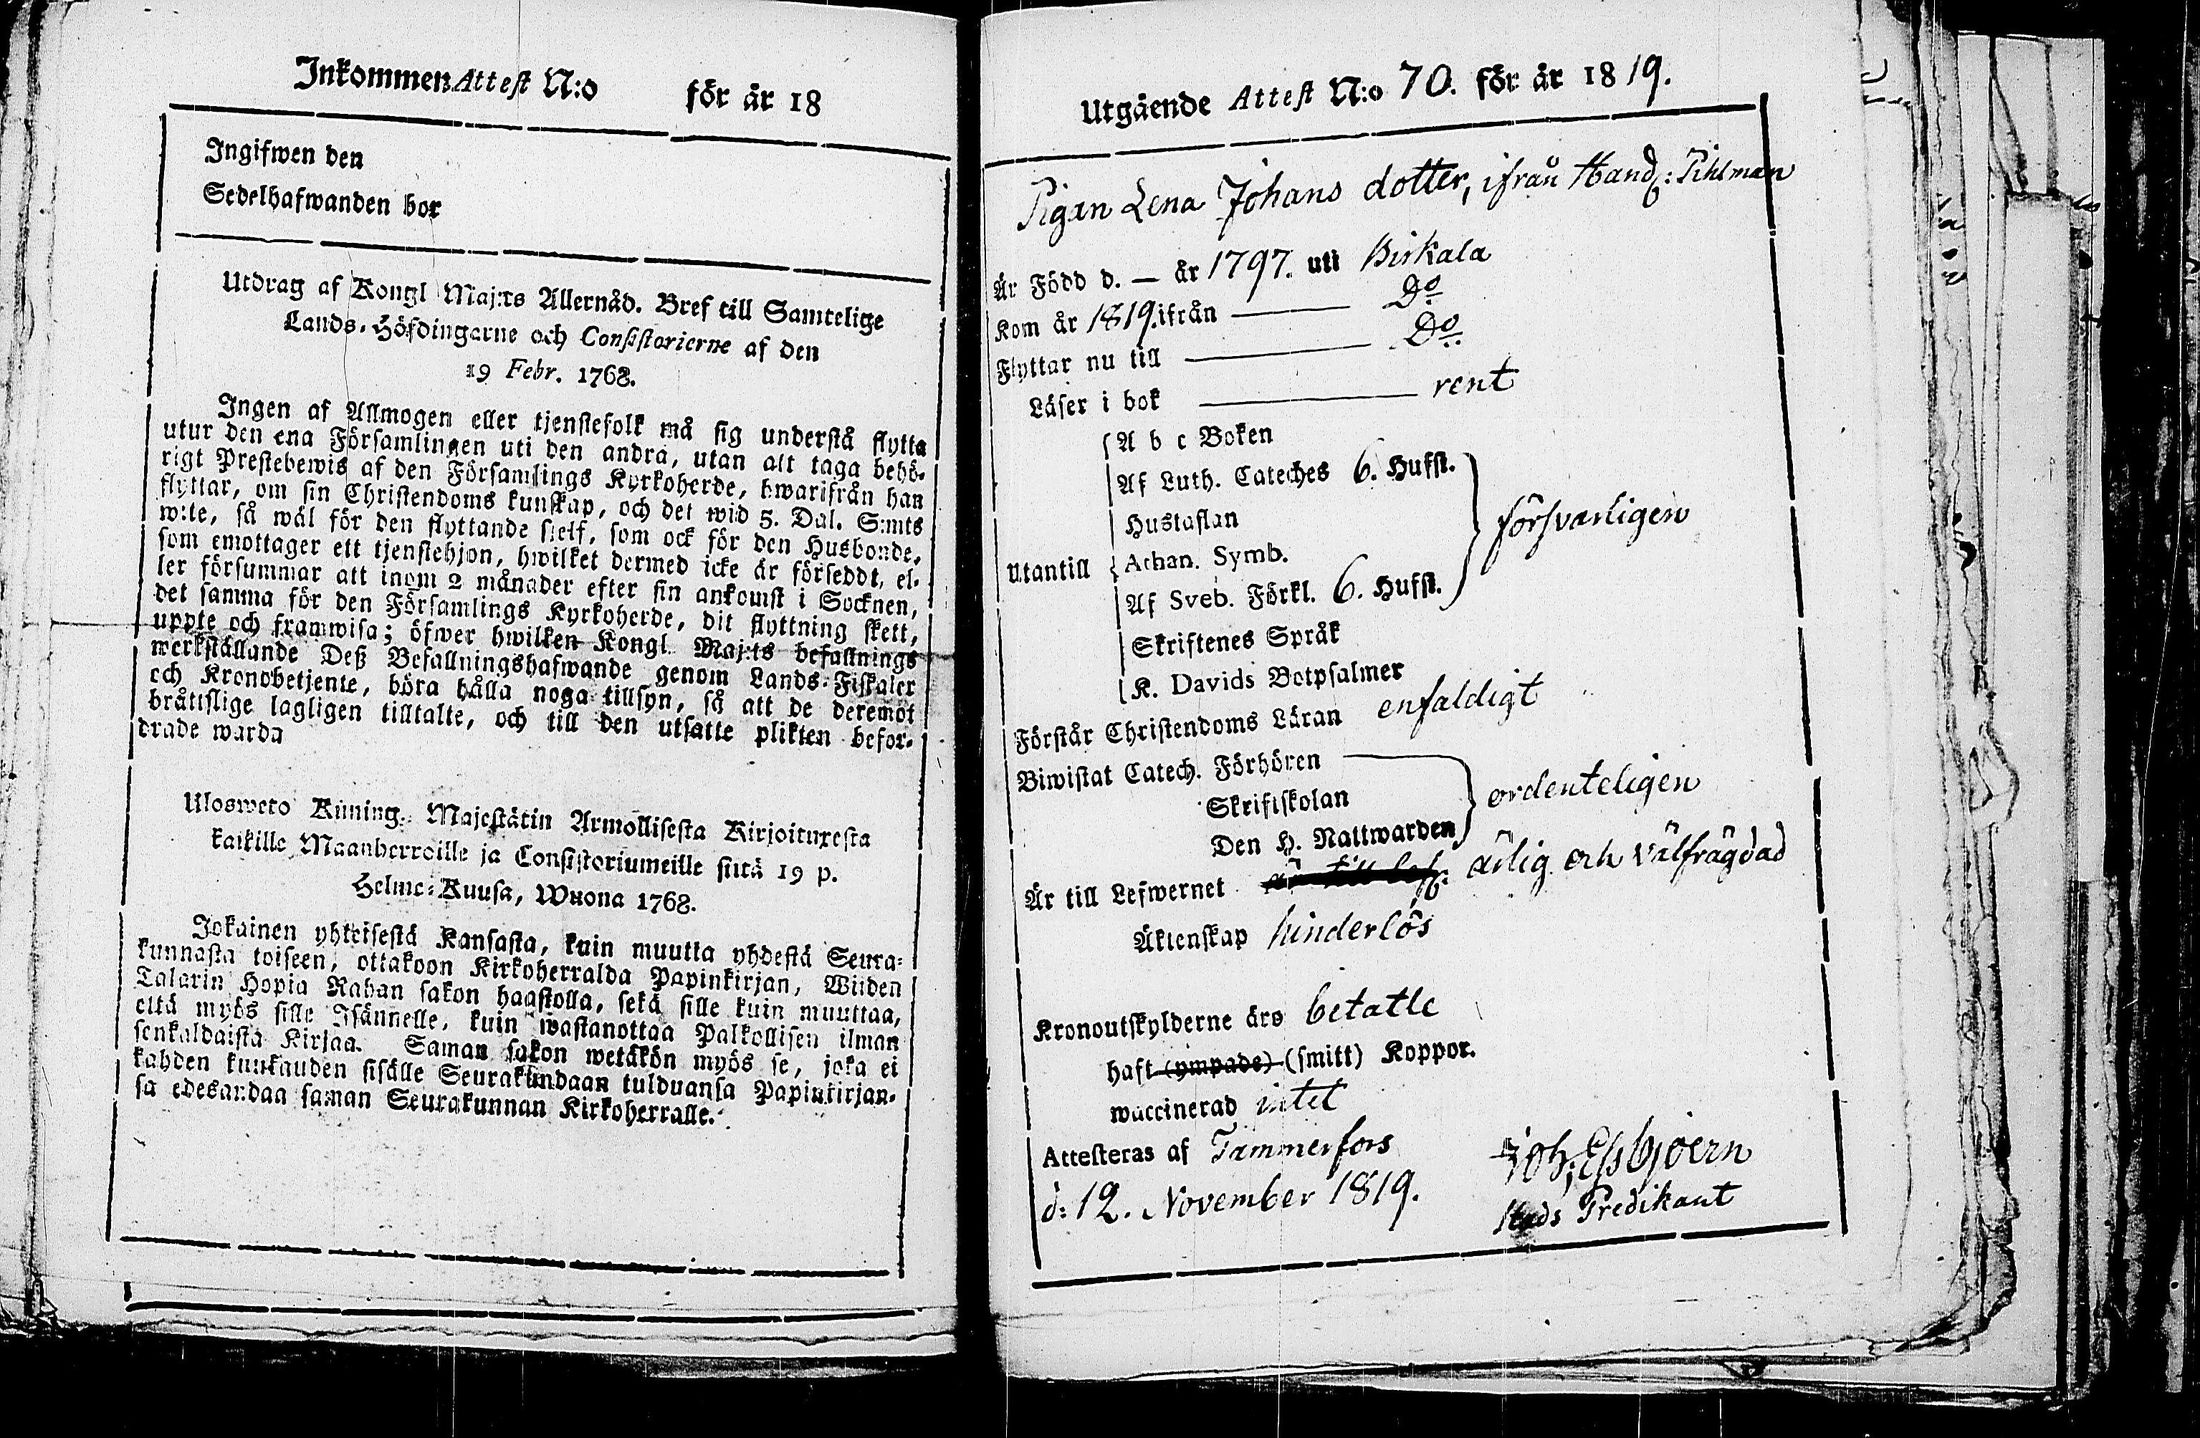 Inkommen Attest N:o för år 18
Ingifwen den
Sedelhafwanden bor
Utdrag af Kongl Maj:ts Allernåd. Bref till Samtelige
Lands-Höfdingarne och Consistorierne af den
19 Febr. 1768.
Ingen af Allmogen eller tjenstefolk må sig understå flytta
utur den ena Församlingen uti den andra, utan att taga behö-
rigt Prestebewis af den Församlings Kyrkoherde, hwarifrån han
flyttar, om sin Christendoms kunskap, och det wid 5. Dal. S:mts
w:te, så wäl för den flyttande sielf, som ock för den Husbonde,
som emottager ett tjenstehjon, hwilket dermed icke är försedt, el-
ler försummar att inom 2 månader efter sin ankomst i Socknen,
det samma för den Församlings Kyrkoherde, dit flyttning skett,
uppte och framwisa; öfwer hwilken Kongl. Maj:ts befallnings
werkställande Deß Befallningshafwande genom Lands-Fiskaler
och Kronobetjente, böra hålla noga tillsyn, så att de deremot
bråttslige lagligen tilltalte, och till den utsatte plikten befor-
drade warda
Ulosweto Kuning. Majestätin Armollisesta Kirjoituxesta
kaikille Maanherroille ja Consistoriumeille siitä 19 p.
Helme-Kuusa, Wuona 1768.
Jokainen yhteisestä Kansasta, kuin muutta yhdestä Seura-
kunnasta toiseen, ottakoon Kirkoherralda Papinkirjan, Wiiden
Talarin Hopia Rahan sakon haastolla, sekä sille kuin muuttaa,
että myös sille Isännelle, kuin wastanottaa Palkollisen ilman
senkaldaista Kirjaa. Saman sakon wetäkön myös se, joka ei
kahden kuukauden sisälle Seurakundaan tulduansa Papinkirjan-
sa edesandaa saman Seurakunnan Kirkoherralle.
Utgående Attest N:o 70. för år 1819.
Pigan Lena Johans dotter, ifrån Hand: Pihlman
Är Född d. — år 1797. uti Birkala
Kom år 1819. ifrån — Do
Flyttar nu till — Do
Läser i bok — rent
A b c Boken
Af Luth. Cateches 6. Hufst.
Hustaflan
försvarligen
Utantill Athan. Symb.
Af Sveb. Förkl. 6. Hufst.
Skriftenes Språk
K. Davids Botpsalmer
Förstår Christendoms Läran enfaldigt
Biwistat Catech. Förhören
Skriftskolan ordenteligen
Den H. Nattwarden
Är till Lefwernet ärlig och välfrägdad
Äktenskap hinderlös
Kronoutskylderne äro betatle
haft (ympade) (smitt) Koppor.
waccinerad intet
Attesteras af Tammerfors Joh: Essbjoern
d: 12. November 1819. Stads Predikant